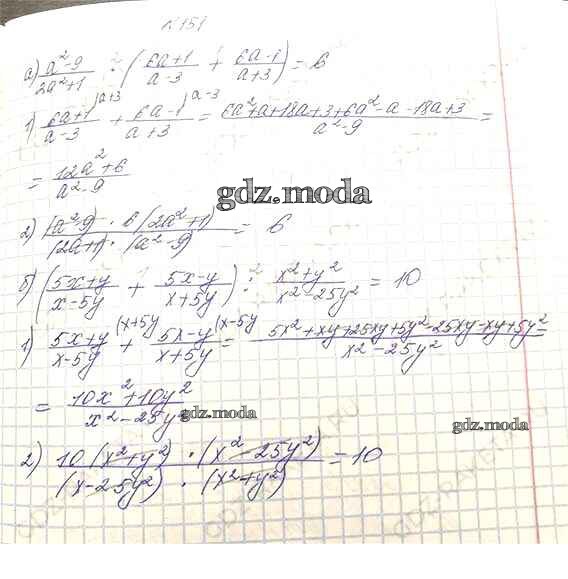 №151
а) (a²-9)/(2a²+1) : ((6a+1)/(a-3) + (6a-1)/(a+3)) = 6
1) (6a+1)/(a-3) |a+3 + (6a-1)/(a+3) |a-3 = (6a²+a+18a+3+6a²-a-18a+3)/(a²-9) =
= (12a²+6)/(a²-9)
gdz.moda
2) ((a²-9) · 6(2a²+1))/((2a+1) · (a²-9)) = 6
б) ((5x+y)/(x-5y) + (5x-y)/(x+5y)) : (x²+y²)/(x²-25y²) = 10
1) (5x+y)/(x-5y) (x+5y + (5x-y)/(x+5y) (x-5y = (5x²+xy+25xy+5y²-25xy-xy+5y²)/(x²-25y²) =
= (10x²+10y²)/(x²-25y²)
gdz.moda gdz.moda
2) (10(x²+y²) · (x²-25y²))/((x-25y²) · (x²+y²)) = 10